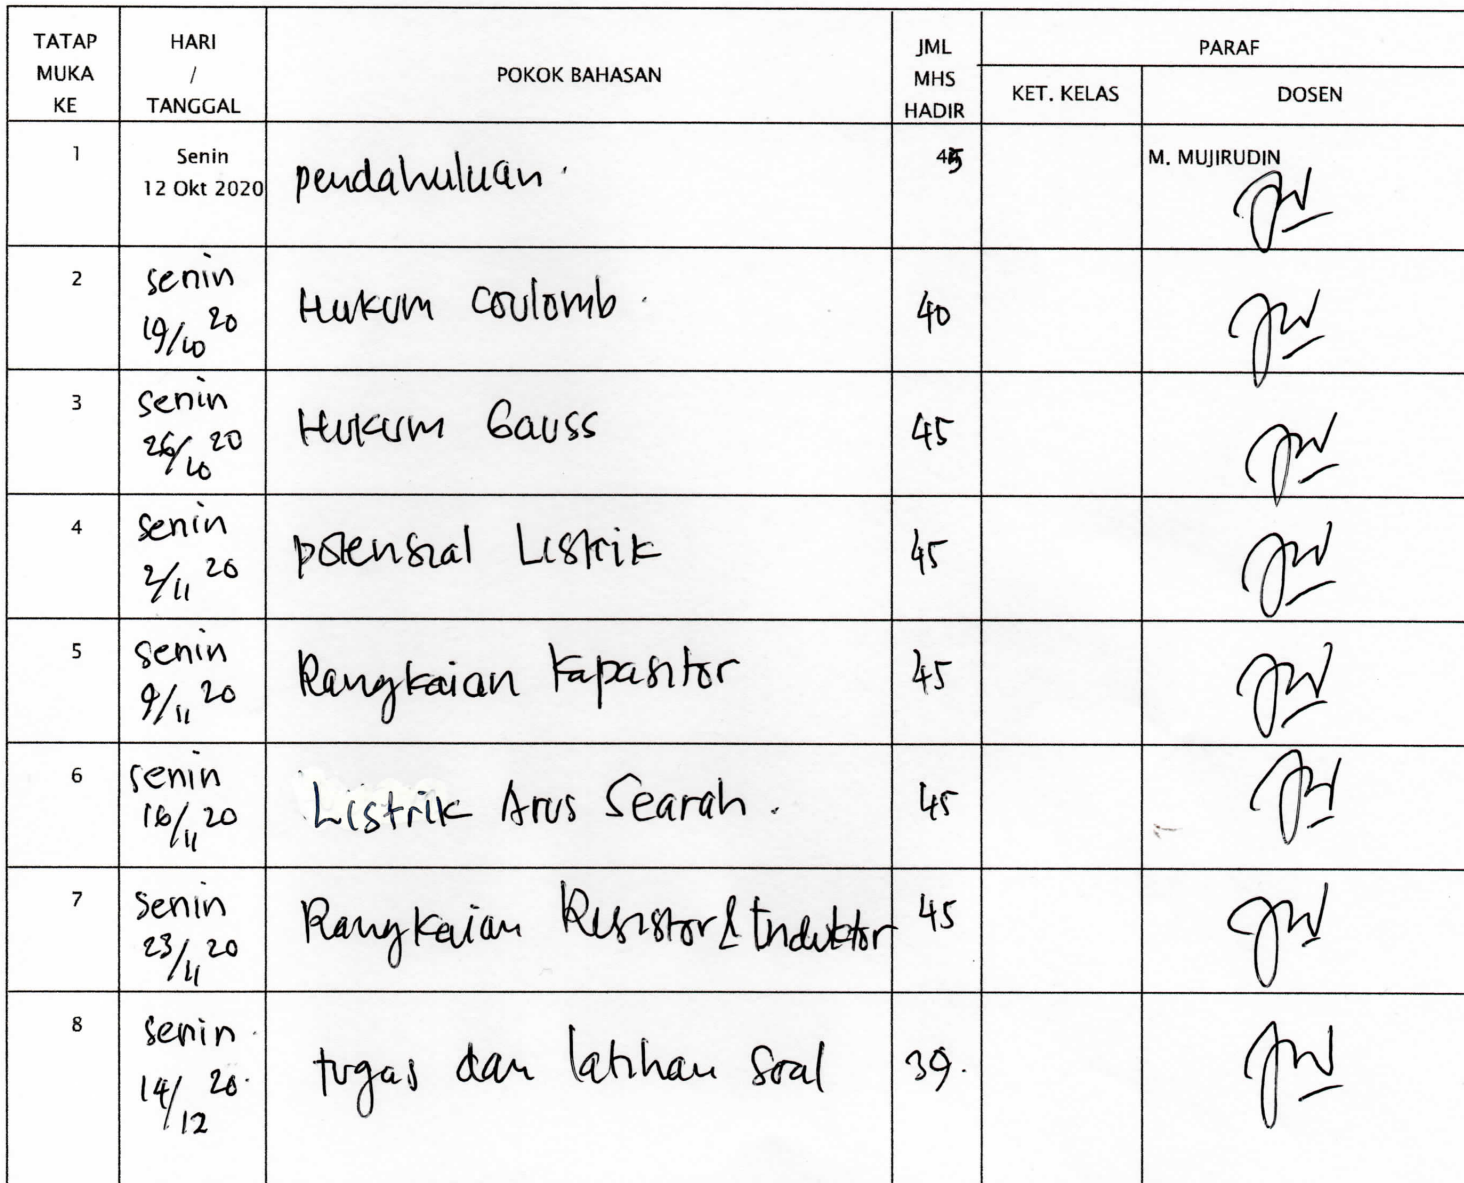 TATAP MUKA KE
HARI / TANGGAL
POKOK BAHASAN
JML MHS HADIR
PARAF
KET. KELAS
DOSEN
1
Senin
12 Okt 2020
pendahuluan.
M. MUJIRUDIN
2
senin
19/10 20
Hukum Coulomb.
40
3
senin
26/10 20
Hukum Gauss
45
4
senin
2/11 20
potensial Listrik
45
5
senin
9/11 20
Rangkaian Kapasitor
45
6
senin
16/11 20
Listrik Arus Searah.
45
7
senin
23/11 20
Rangkaian Resistor & Induktor
45
8
senin.
14/12 20.
tugas dan latihan soal
39.